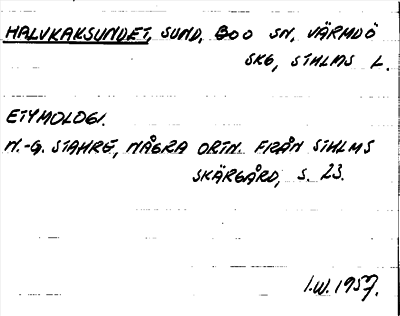 HALVKAKSUNDET, SUND, BOO SN, VÄRMDÖ
SKG, STHLMS L.
ETYMOLOGI.
N.-G. STAHRE, NÅGRA ORTN. FRÅN STHLMS
SKÄRGÅRD, S. 23.
I.W. 1957.